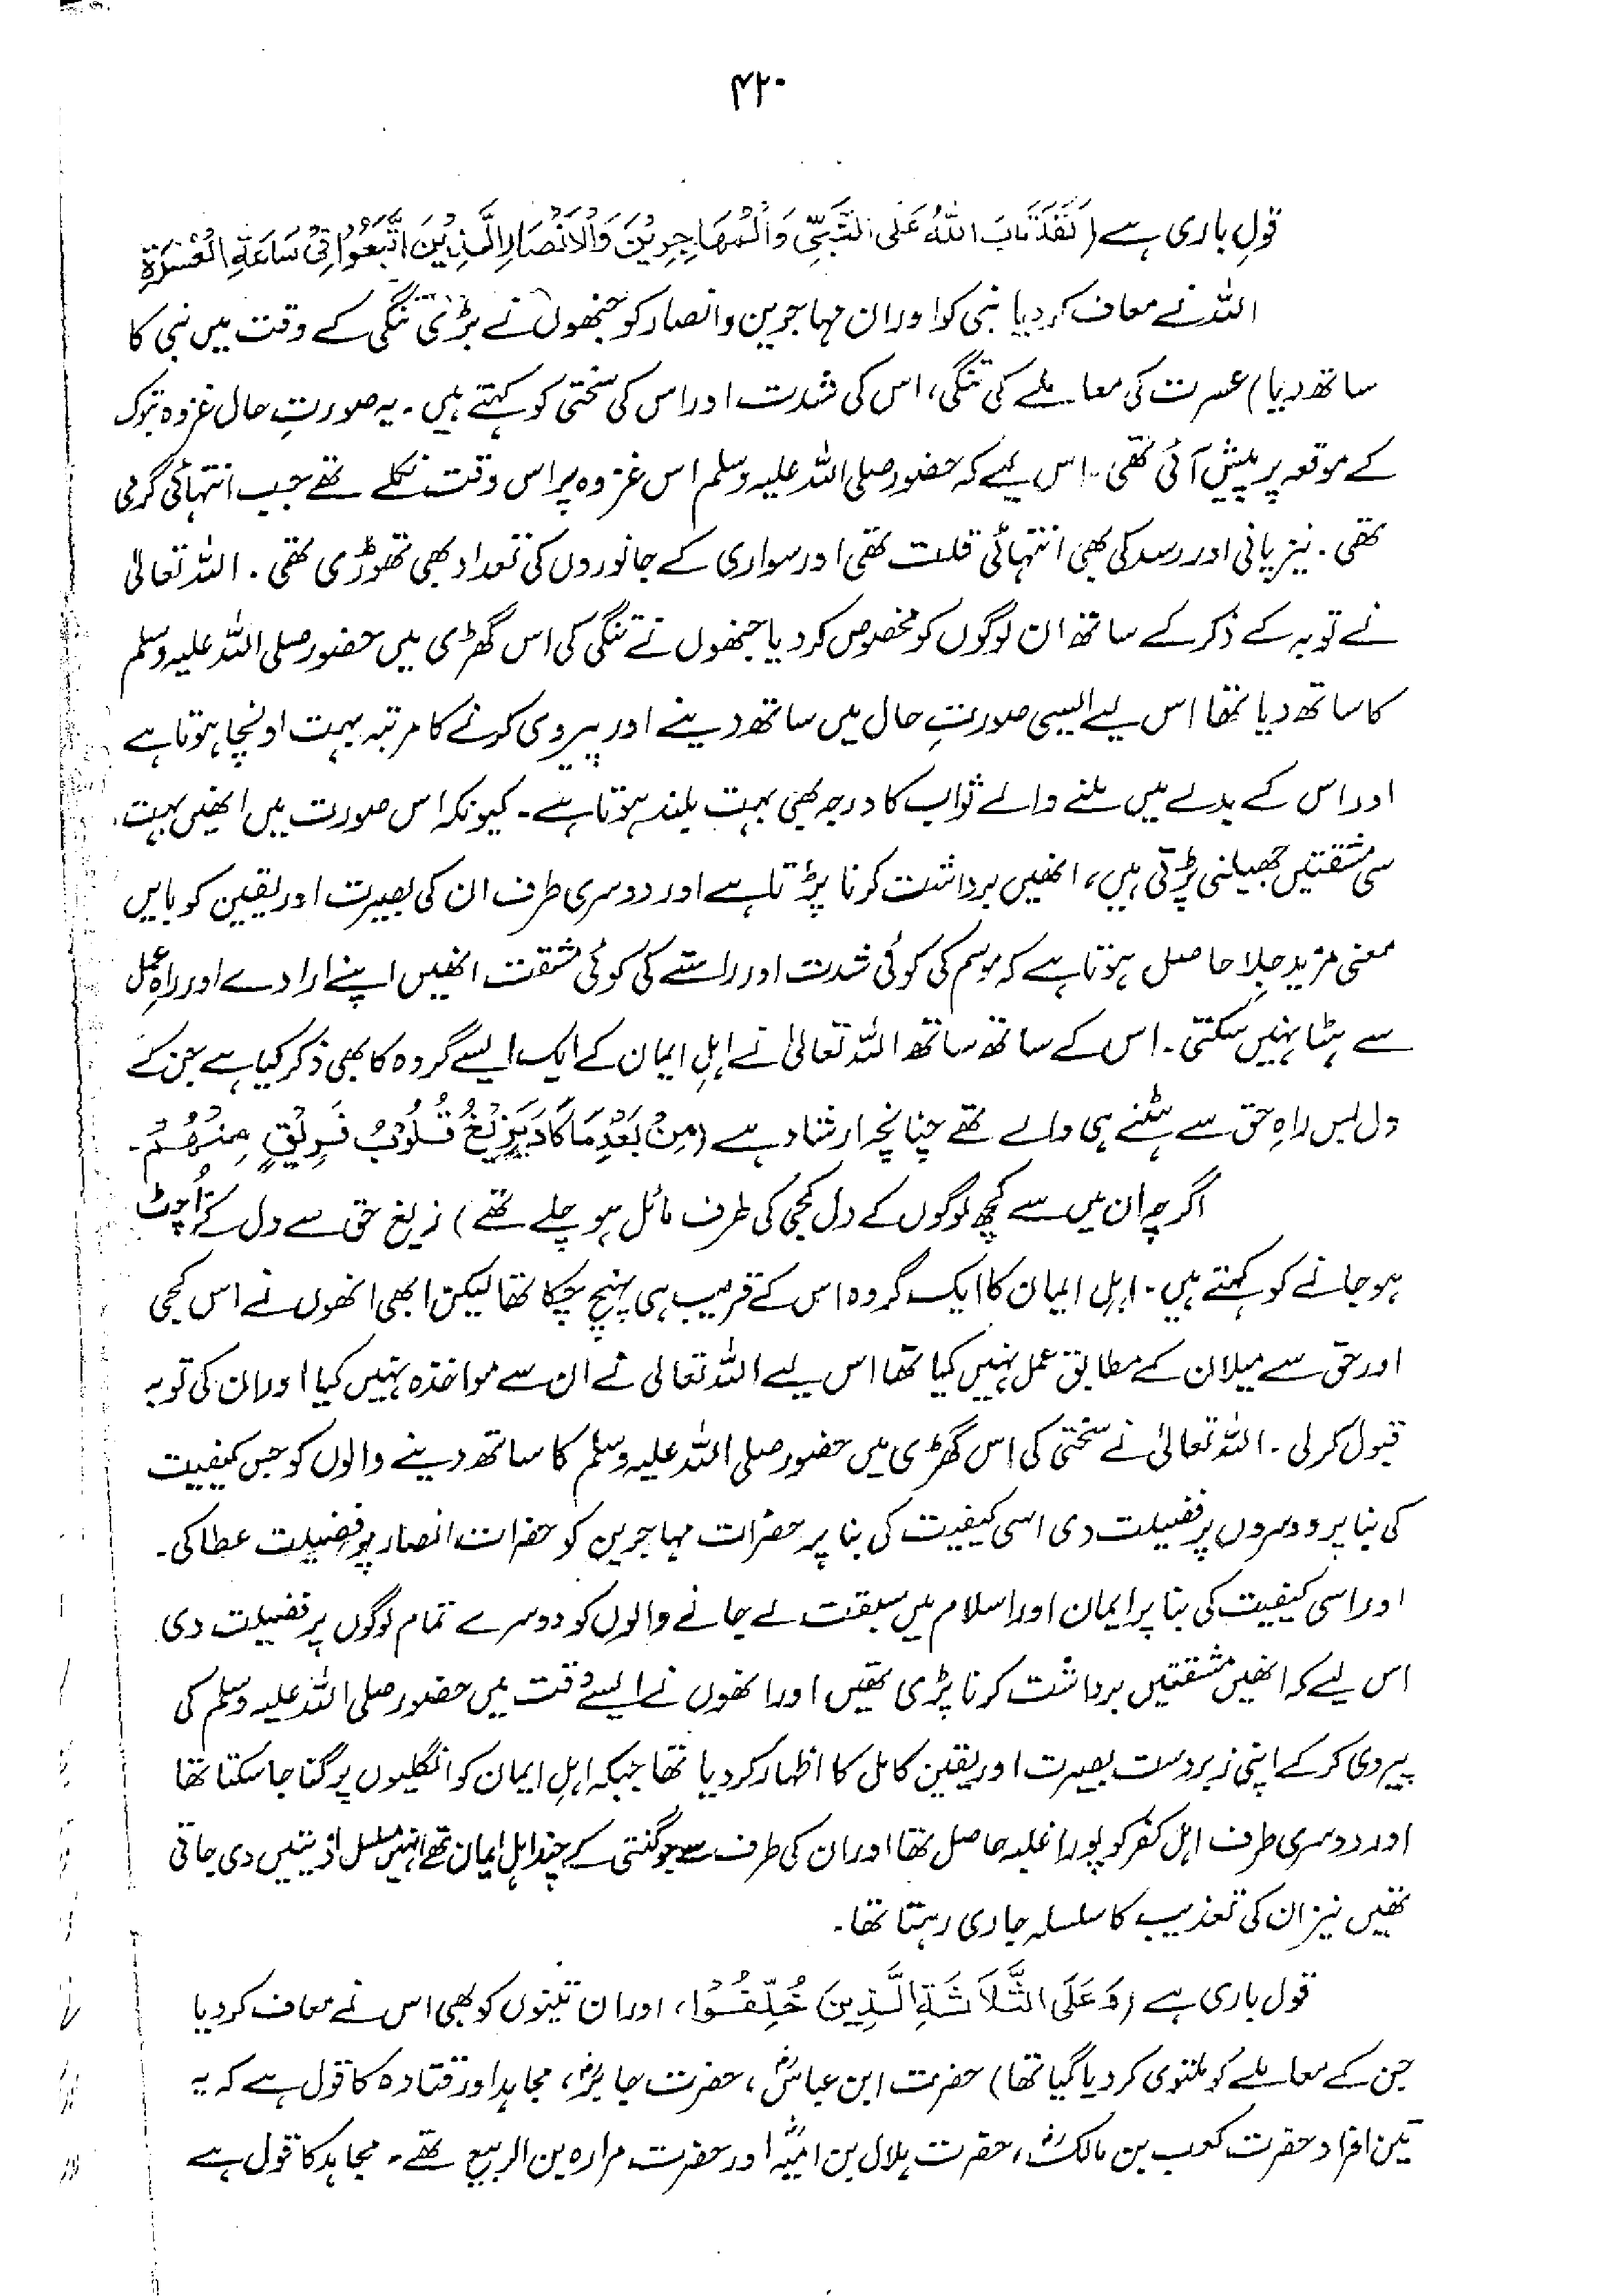 ۴۲۰
قولِ باری ہے (لَقَدْ تَابَ اللّٰهُ عَلَى النَّبِيِّ وَالْمُهَاجِرِيْنَ وَالْاَنْصَارِ الَّذِيْنَ اتَّبَعُوْهُ فِيْ سَاعَةِ الْعُسْرَةِ
اللہ نے معاف کر دیا نبی کو اور ان مہاجرین و انصار کو جنھوں نے بڑی تنگی کے وقت میں نبی کا
ساتھ دیا) عسرت کی معاملے کی تنگی، اس کی شدت اور اس کی سختی کو کہتے ہیں۔ یہ صورتِ حال غزوہ تبوک
کے موقعہ پر پیش آئی تھی۔ اس لیے کہ حضور صلی اللہ علیہ وسلم اس غزوہ پر اس وقت نکلے تھے جب انتہائی گرمی
تھی۔ نیز پانی اور رسد کی بھی انتہائی قلت تھی اور سواری کے جانوروں کی تعداد بھی تھوڑی تھی۔ اللہ تعالیٰ
نے توبہ کے ذکر کے ساتھ ان لوگوں کو مخصوص کر دیا جنھوں نے تنگی کی اس گھڑی میں حضور صلی اللہ علیہ وسلم
کا ساتھ دیا تھا اس لیے ایسی صورتِ حال میں ساتھ دینے اور پیروی کرنے کا مرتبہ بہت اونچا ہوتا ہے
اور اس کے بدلے میں ملنے والے ثواب کا درجہ بھی بہت بلند ہوتا ہے۔ کیونکہ اس صورت میں انھیں بہت
سی مشقتیں جھیلنی پڑتی ہیں، انھیں برداشت کرنا پڑتا ہے اور دوسری طرف ان کی بصیرت اور یقین کو بایں
معنی مزید جلا حاصل ہوتا ہے کہ موسم کی کوئی شدت اور راستے کی کوئی مشقت انھیں اپنے ارادے اور راہِ عمل
سے ہٹا نہیں سکتی۔ اس کے ساتھ ساتھ اللہ تعالیٰ نے اہلِ ایمان کے ایک ایسے گروہ کا بھی ذکر کیا ہے جن کے
دل بس راہِ حق سے ہٹنے ہی والے تھے چنانچہ ارشاد ہے (مِنْ بَعْدِ مَا كَادَ يَزِيْغُ قُلُوْبُ فَرِيْقٍ مِنْهُمْ۔
اگرچہ ان میں سے کچھ لوگوں کے دل کجی کی طرف مائل ہو چلے تھے) زیغ حق سے دل کے اُچٹ
ہو جانے کو کہتے ہیں۔ اہلِ ایمان کا ایک گروہ اس کے قریب ہی پہنچ چکا تھا لیکن ابھی انھوں نے اس کجی
اور حق سے میلان کے مطابق عمل نہیں کیا تھا اس لیے اللہ تعالیٰ نے ان سے مواخذہ نہیں کیا اور ان کی توبہ
قبول کر لی۔ اللہ تعالیٰ نے سختی کی اس گھڑی میں حضور صلی اللہ علیہ وسلم کا ساتھ دینے والوں کو جس کیفیت
کی بنا پر دوسروں پر فضیلت دی اسی کیفیت کی بنا پر حضرات مہاجرین کو حضرات انصار پر فضیلت عطا کی۔
اور اسی کیفیت کی بنا پر ایمان اور اسلام میں سبقت لے جانے والوں کو دوسرے تمام لوگوں پر فضیلت دی
اس لیے کہ انھیں مشقتیں برداشت کرنا پڑی تھیں اور انھوں نے ایسے وقت میں حضور صلی اللہ علیہ وسلم کی
پیروی کر کے اپنی زبردست بصیرت اور یقین کامل کا اظہار کر دیا تھا جبکہ اہلِ ایمان کو انگلیوں پر گنا جا سکتا تھا
اور دوسری طرف اہل کفر کو پورا غلبہ حاصل تھا اور ان کی طرف سے جو گنتی کے چند اہل ایمان تھے انہیں مسلسل اذیتیں دی جاتی
تھیں نیز ان کی تعذیب کا سلسلہ جاری رہتا تھا۔
قول باری ہے (وَعَلَى الثَّلَاثَةِ الَّذِيْنَ خُلِّفُوْا، اور ان تینوں کو بھی اس نے معاف کر دیا
جن کے معاملے کو ملتوی کر دیا گیا تھا) حضرت ابن عباسؓ، حضرت جابرؓ، مجاہد اور قتادہ کا قول ہے کہ یہ
تین افراد حضرت کعب بن مالکؓ، حضرت ہلال بن امیہؓ اور حضرت مرارہ بن الربیع تھے۔ مجاہد کا قول ہے